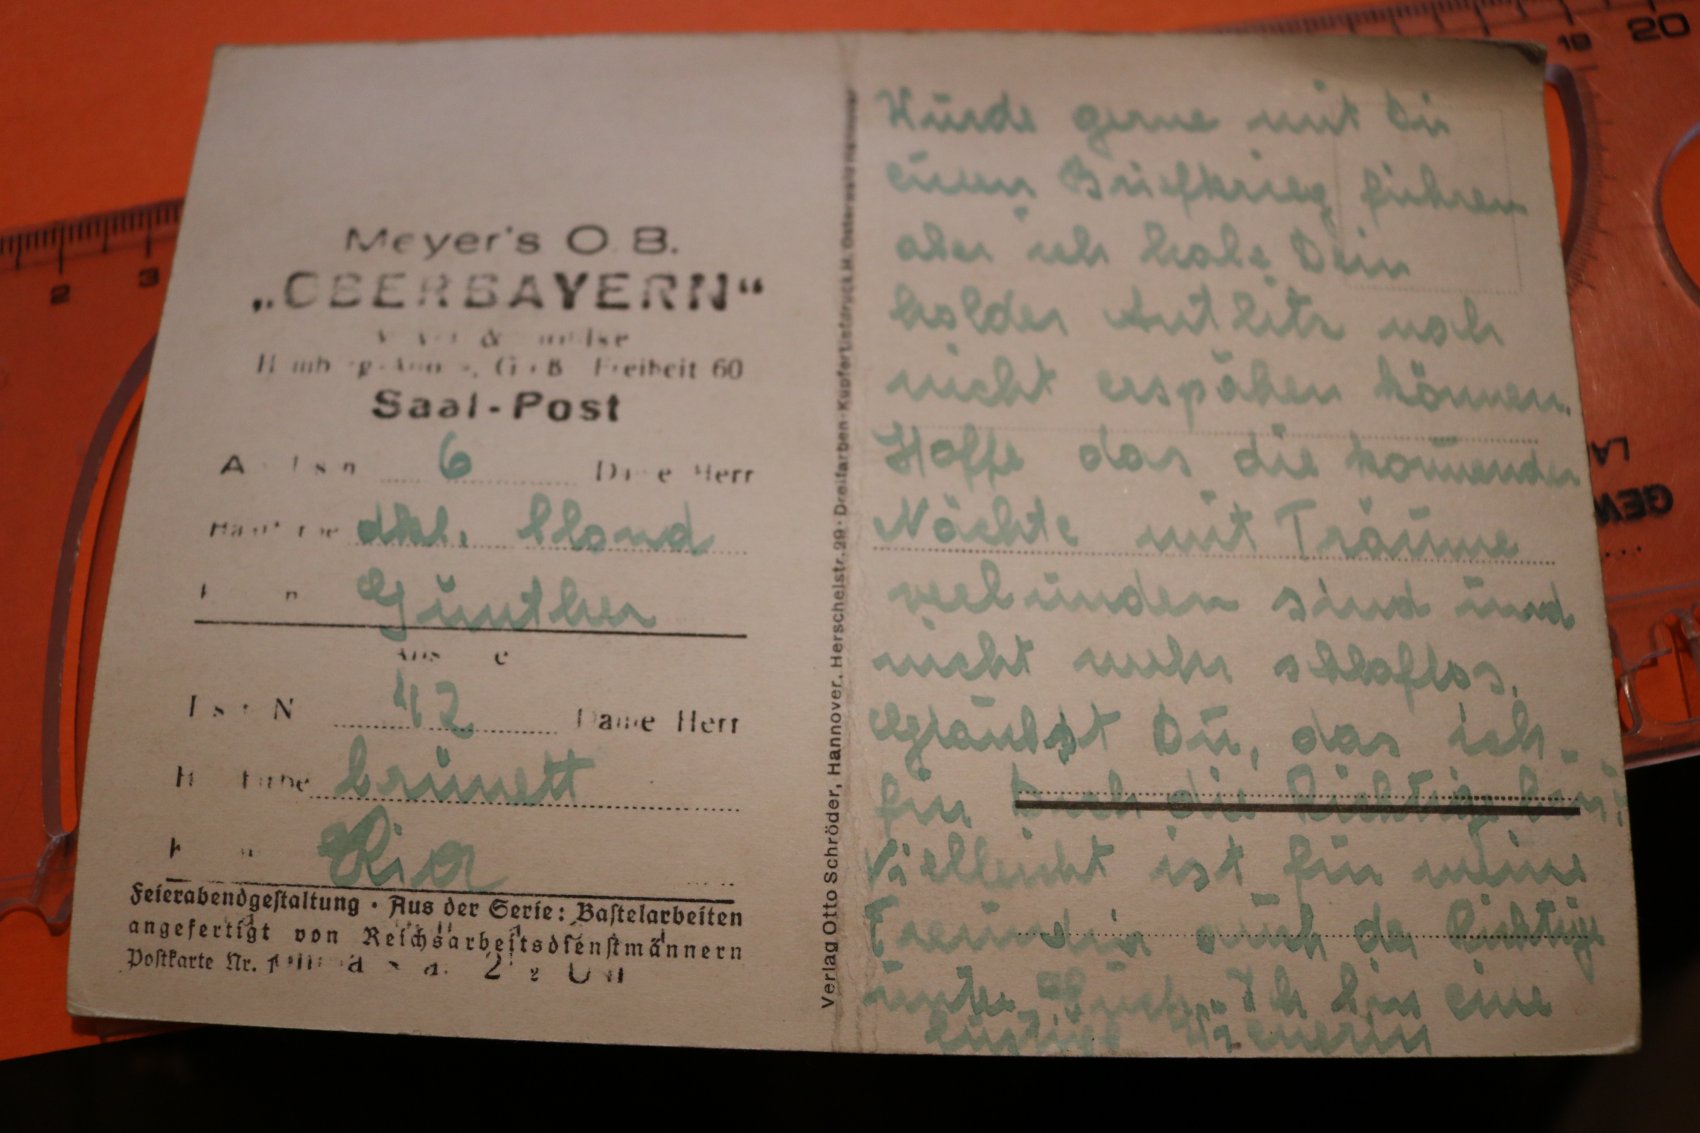 Meyer's O. B.
„OBERBAYERN“
&
Freiheit 60
Saal-Post
6 Dame Herr
dkl. blond
Günther
42 Dame Herr
brünett
Ria
Feierabendgestaltung · Aus der Serie: Bastelarbeiten
angefertigt von Reichsarbeitsdienstmännern
Postkarte Nr.
Verlag Otto Schröder, Hannover, Herschelstr. 29 · Dreifarben-Kupfertiefdruck
Würde gerne mit Dir
einen Briefkrieg führen
aber ich habe Dein
holdes Antlitz noch
nicht erspähen können.
Hoffe das die kommenden
Nächte mit Träume
verbunden sind und
nicht mehr schlaflos.
Glaubst Du, das ich
für Dich die Richtige bin?
Vielleicht ist für meine
Freundin auch der Richtige
unter Euch. Ich bin eine
lustige Wienerin
20
19
2
3
GEW
LA